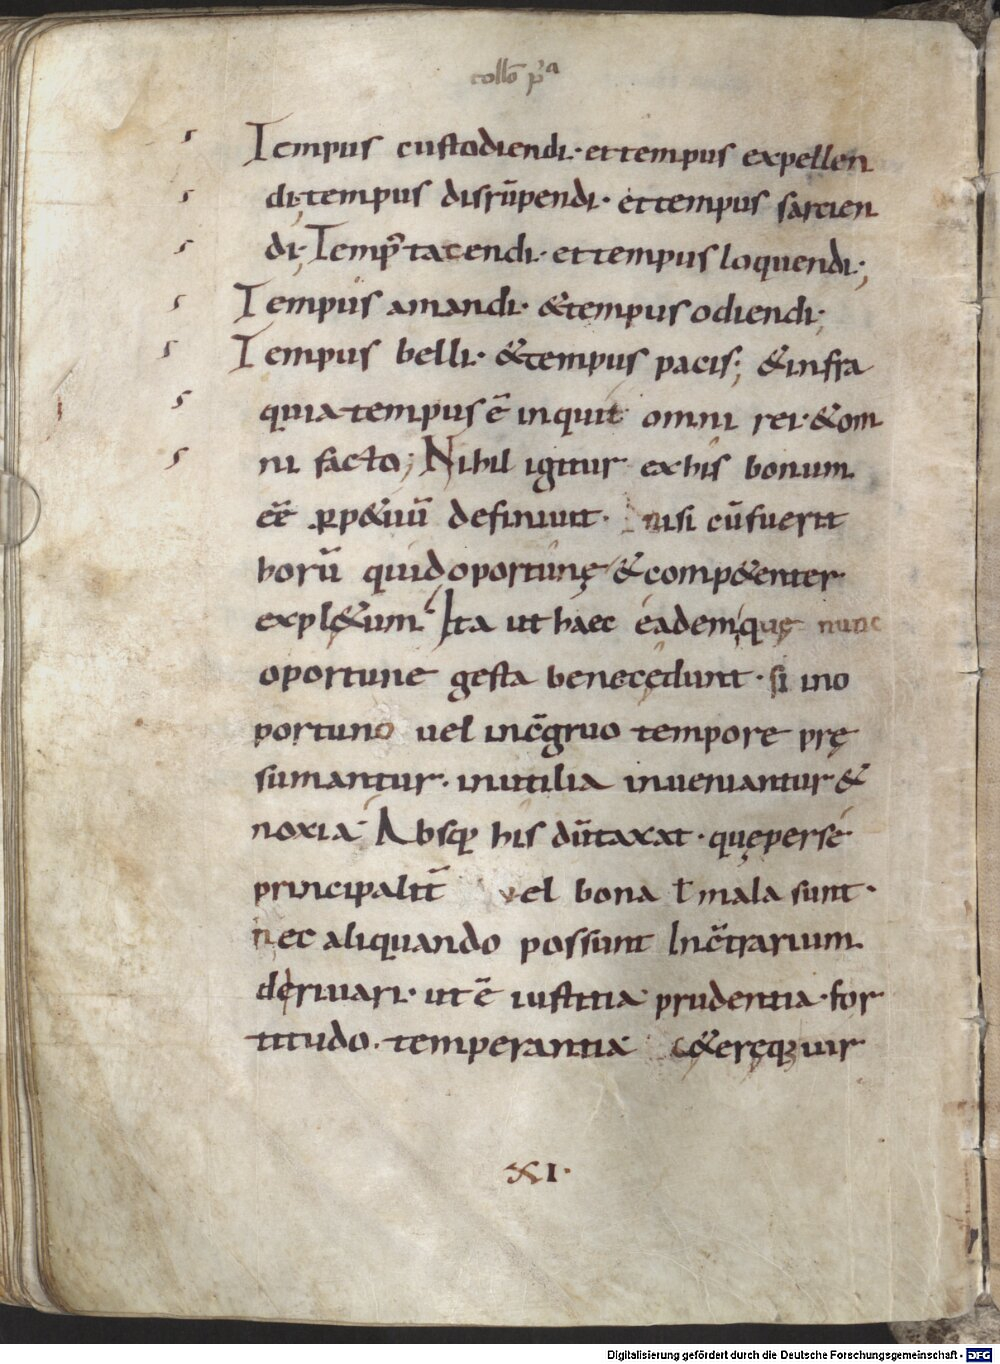 collō pͥᵃ
Tempus custodiendi· et tempus expellen
di; tempus disrūpendi· et tempus sarcien
di; Temp᷒ tacendi· et tempus loquendi;
Tempus amandi· & tempus odiendi;
Tempus belli· & tempus pacis; & infra
quia tempus ē inquit omni rei & om
ni facto; Nihil igitur ex his bonum
eē̄ ꝑp&uū definiunt· nisi cū fuerit
horū quid oportunę & comp&enter
expl&um· Ita ut haec eademquę nunc
oportune gesta bene cędunt· si ino
portuno uel incc̄gruo tempore prę
sumantur· inutilia inueniantur &
noxia· Absq; his dūtaxat· quę per se
principalit̄ vel bona ł mala sunt·
nec aliquando possunt In c̄trarium
deriuari· ut ē iustitia prudentia· for
titudo· temperantia c&eręq; uir
XI·
Digitalisierung gefördert durch die Deutsche Forschungsgemeinschaft - DFG